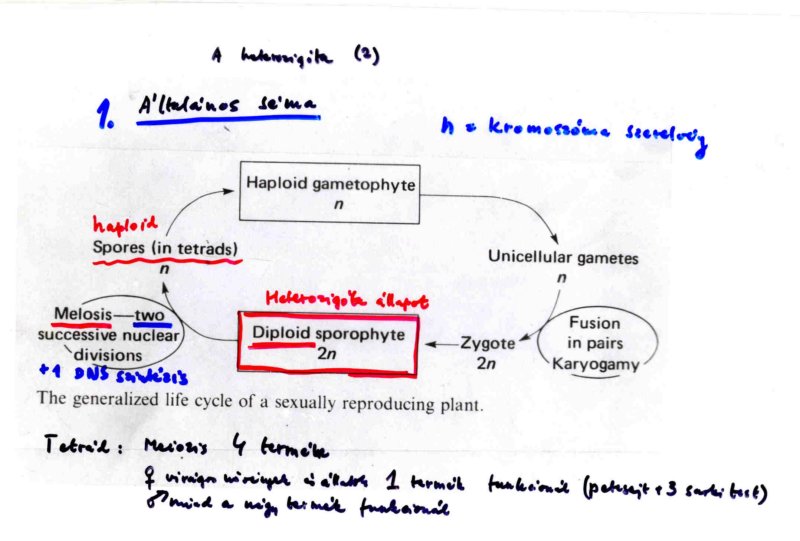 A heterozigóta (2)
1. Általános séma
n = kromoszóma szerelvény
Haploid gametophyte
n
haploid
Spores (in tetrads)
n
Unicellular gametes
n
Heterozigóta állapot
Meiosis—two
successive nuclear
divisions
Diploid sporophyte
2n
Zygote
2n
Fusion
in pairs
Karyogamy
+1 DNS szintézis
The generalized life cycle of a sexually reproducing plant.
Tetrád: Meiózis 4 terméke
♀ virágos növények és állatok 1 termék funkcionál (petesejt + 3 sarki test)
♂ mind a négy termék funkcionál